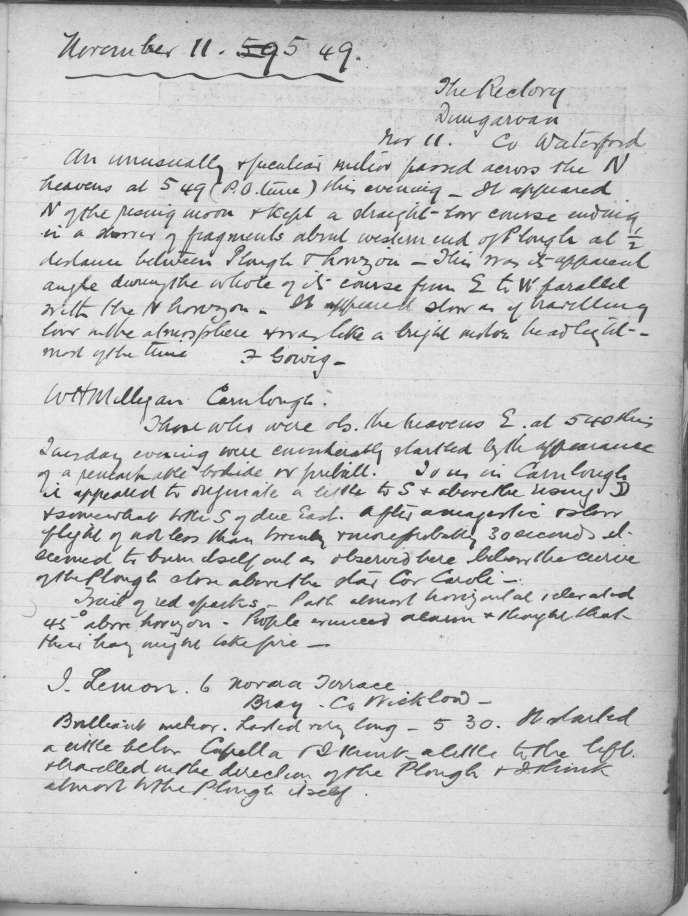 November 11. 59 5 49.
The Rectory
Dungarvan
Nov 11. Co Waterford
An unusually & peculiar meteor passed across the N
heavens at 5 49 (P.O. time) this evening – It appeared
N of the rising moon & kept a straight low course ending
in a shower of fragments about western end of Plough at ½
distance between Plough & horizon – This was its apparent
angle during the whole of its course from E to W parallel
with the N horizon – It appeared slow as if travelling
low in the atmosphere & was like a bright motor headlight –
most of the time
W H Milligan Carnlough.
Those who were obs. the heavens E. at 5 40 this
Tuesday evening were considerably startled by the appearance
of a remarkable bolide or fireball. To us in Carnlough
it appeared to originate a little to S & above the rising D
& somewhat to the S of due East. After a majestic & slow
flight of not less than twenty & more probably 30 seconds it
seemed to burn itself out as observed here below the curve
of the Plough close above the star Cor Caroli –
Trail of red sparks – Path almost horizontal & elevated
45° above horizon – People evinced alarm & thought that
their hay might take fire –
J. Lemon. 6 Terrace
Bray. Co Wicklow –
Brilliant meteor. Lasted very long – 5 30. It started
a little below Capella & I think a little to the left.
& travelled in the direction of the Plough & I think
almost to the Plough itself.